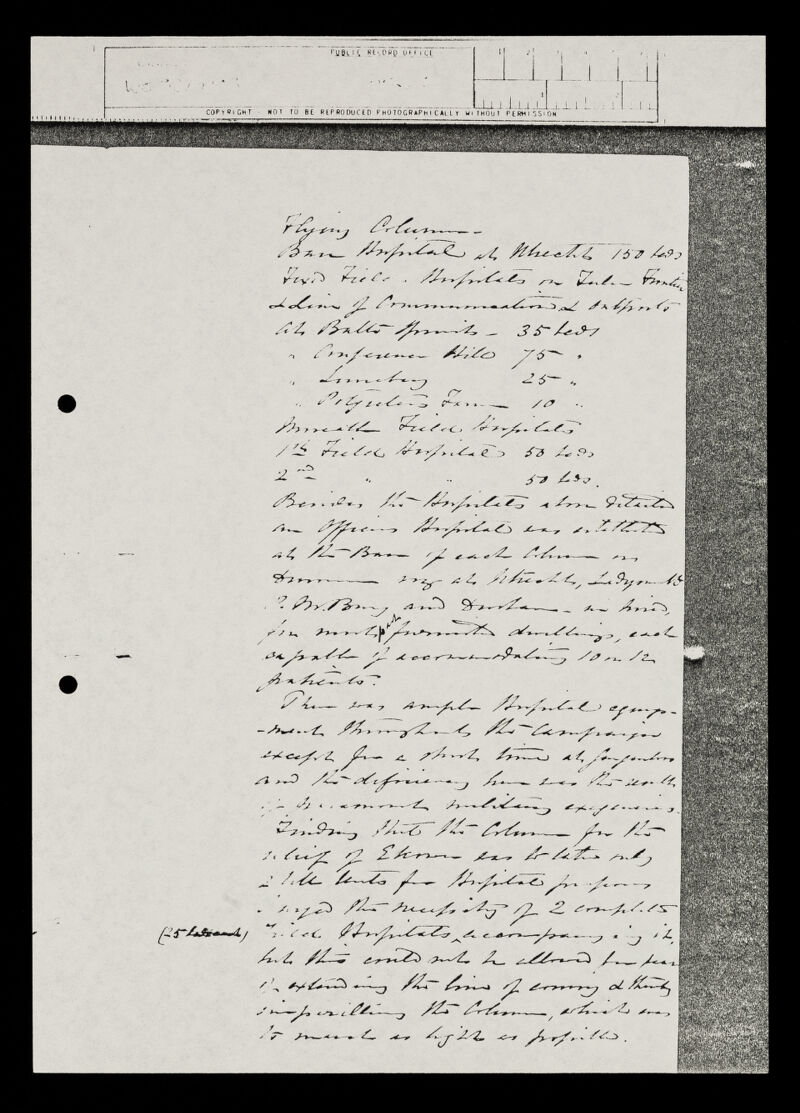 PUBLIC RECORD OFFICE
COPYRIGHT NOT TO BE REPRODUCED PHOTOGRAPHICALLY WITHOUT PERMISSION
Flying Column
Base Hospital at Utrecht 150 beds
Fixed Field Hospitals on Zulu Frontier
& Line of Communication & Outposts
At Balte Spruit - 35 beds
" Conference Hill 75 "
" Luneberg 25 "
" Potgieters Farm 10 "
Moveable Field Hospitals
1st Field Hospital 50 beds
2nd " " 50 beds.
Besides the Hospitals above detailed
an Officers Hospital was established
at the Base of each Column or
viz at Utrecht, Ladysmith
P. M. Burg and Durban - in hired,
for most part furnished dwellings, each
capable of accommodating 10 or 12
patients.
There was ample Hospital equip-
-ment throughout the Campaign
except for a short time at
and the deficiency here was the result
of paramount military exigencies.
Finding that the Column for the
relief of Ekowe was to take only
2 bell tents for Hospital purposes
I urged the necessity of 2 complete
(25 beds each) Field Hospitals accompanying it,
but this could not be allowed for fear
of extending the line of convoy & thereby
imperilling the Column, which was
to march as light as possible.